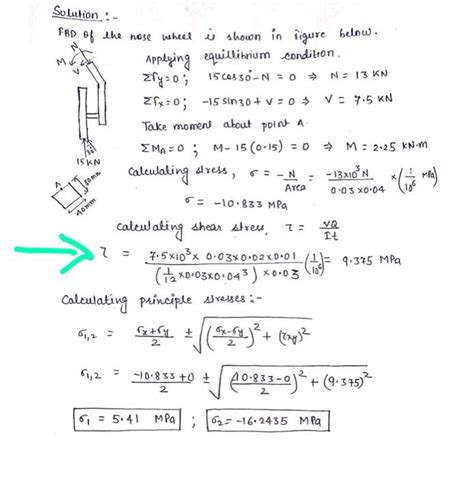 Solution :-
FBD of the nose wheel is shown in figure below.
Applying equillibrium condition.
N
M
V
ΣFy=0; 15cos30°-N = 0 ⇒ N = 13 KN
ΣFx=0; -15sin30+V = 0 ⇒ V = 7.5 KN
Take moment about point A.
ΣMA=0; M-15(0.15) = 0 ⇒ M = 2.25 KN·m
30°
15KN
A
30mm
40mm
Calculating stress, σ = -N/Area = -13×10³N/0.03×0.04 ×(1/10⁶ MPa)
σ = -10.833 MPa
Calculating shear stress, τ = VQ/It
τ = 7.5×10³× 0.03×0.02×0.01/(1/12×0.03×0.04³)×0.03 (1/10⁶)= 9.375 MPa
Calculating principle stresses :-
σ1,2 = σx+σy/2 ± √(σx-σy/2)² + (τxy)²
σ1,2 = -10.833+0/2 ± √(10.833-0/2)² + (9.375)²
σ1 = 5.41 MPa ; σ2 = -16.2435 MPa